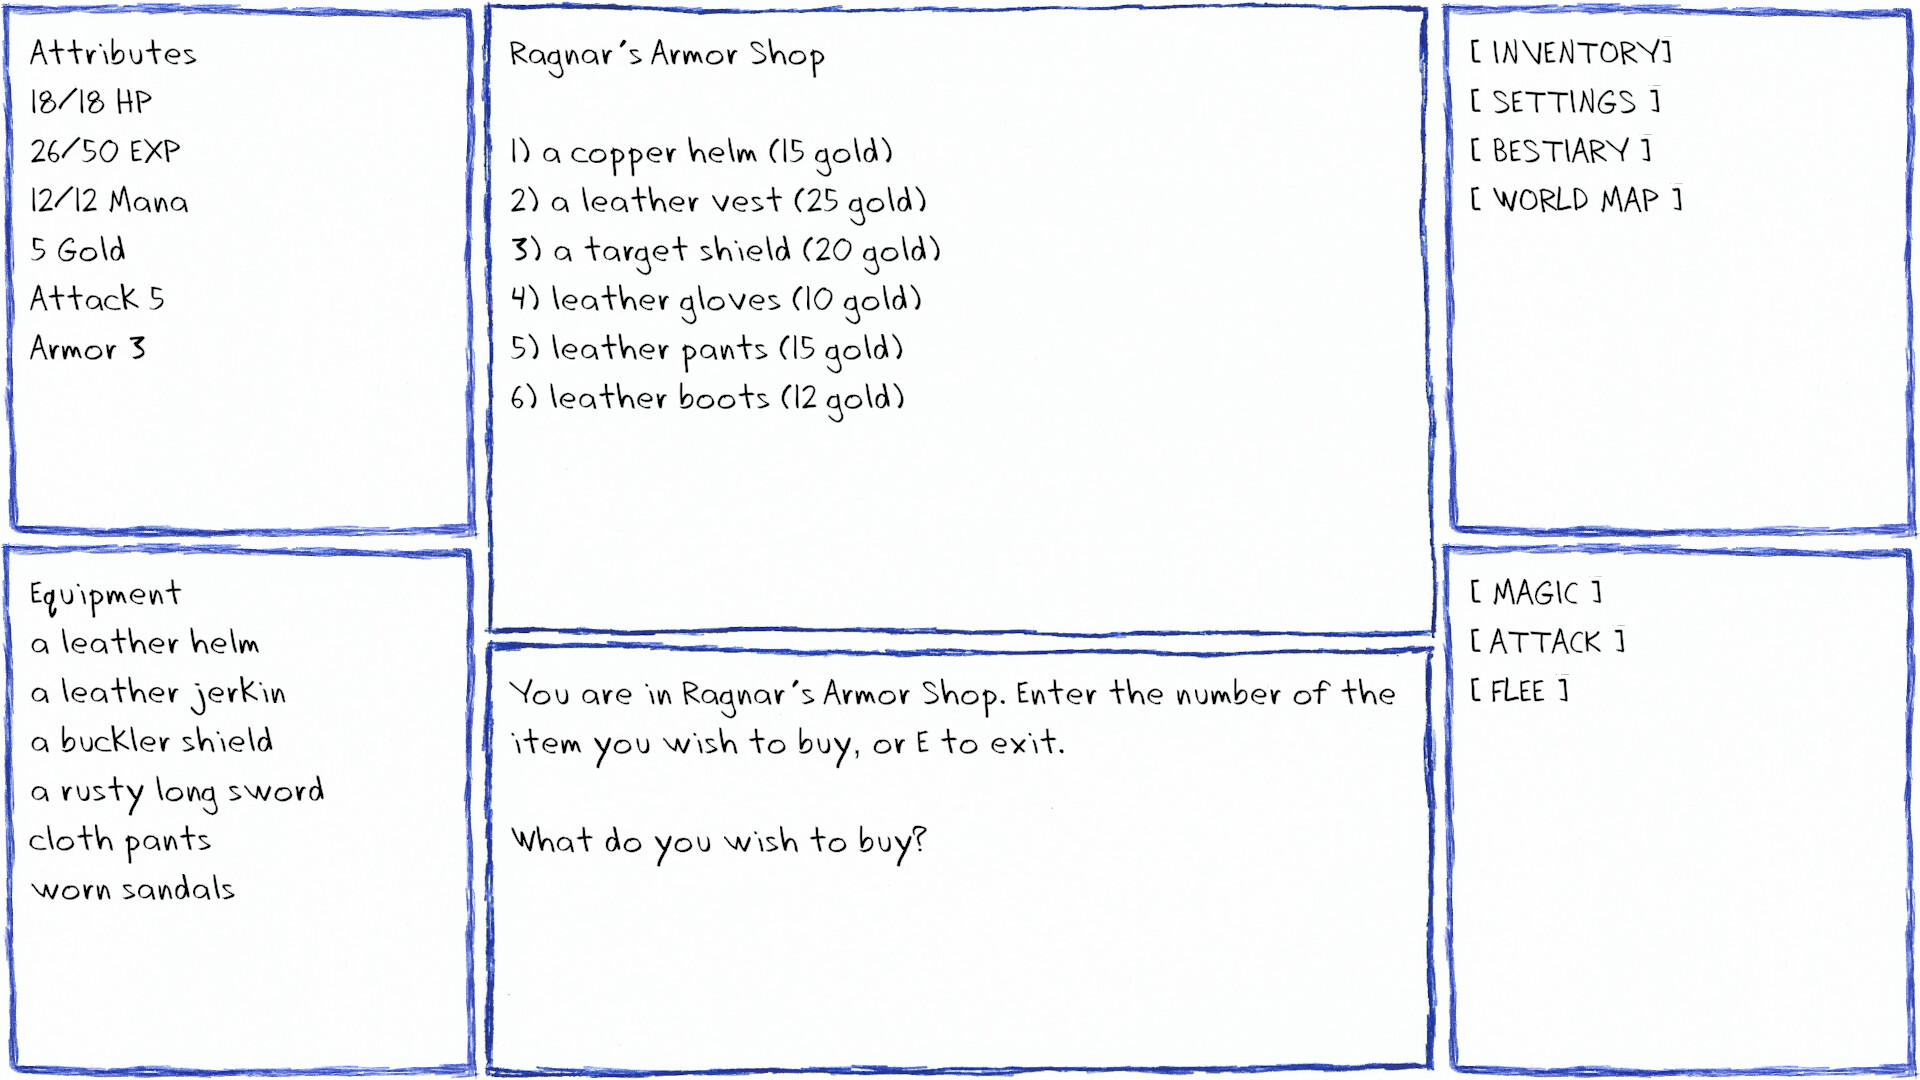 Attributes
18/18 HP
26/50 EXP
12/12 Mana
5 Gold
Attack 5
Armor 3
Equipment
a leather helm
a leather jerkin
a buckler shield
a rusty long sword
cloth pants
worn sandals
Ragnar's Armor Shop
1) a copper helm (15 gold)
2) a leather vest (25 gold)
3) a target shield (20 gold)
4) leather gloves (10 gold)
5) leather pants (15 gold)
6) leather boots (12 gold)
You are in Ragnar's Armor Shop. Enter the number of the
item you wish to buy, or E to exit.
What do you wish to buy?
[ INVENTORY]
[ SETTINGS ]
[ BESTIARY ]
[ WORLD MAP ]
[ MAGIC ]
[ ATTACK ]
[ FLEE ]